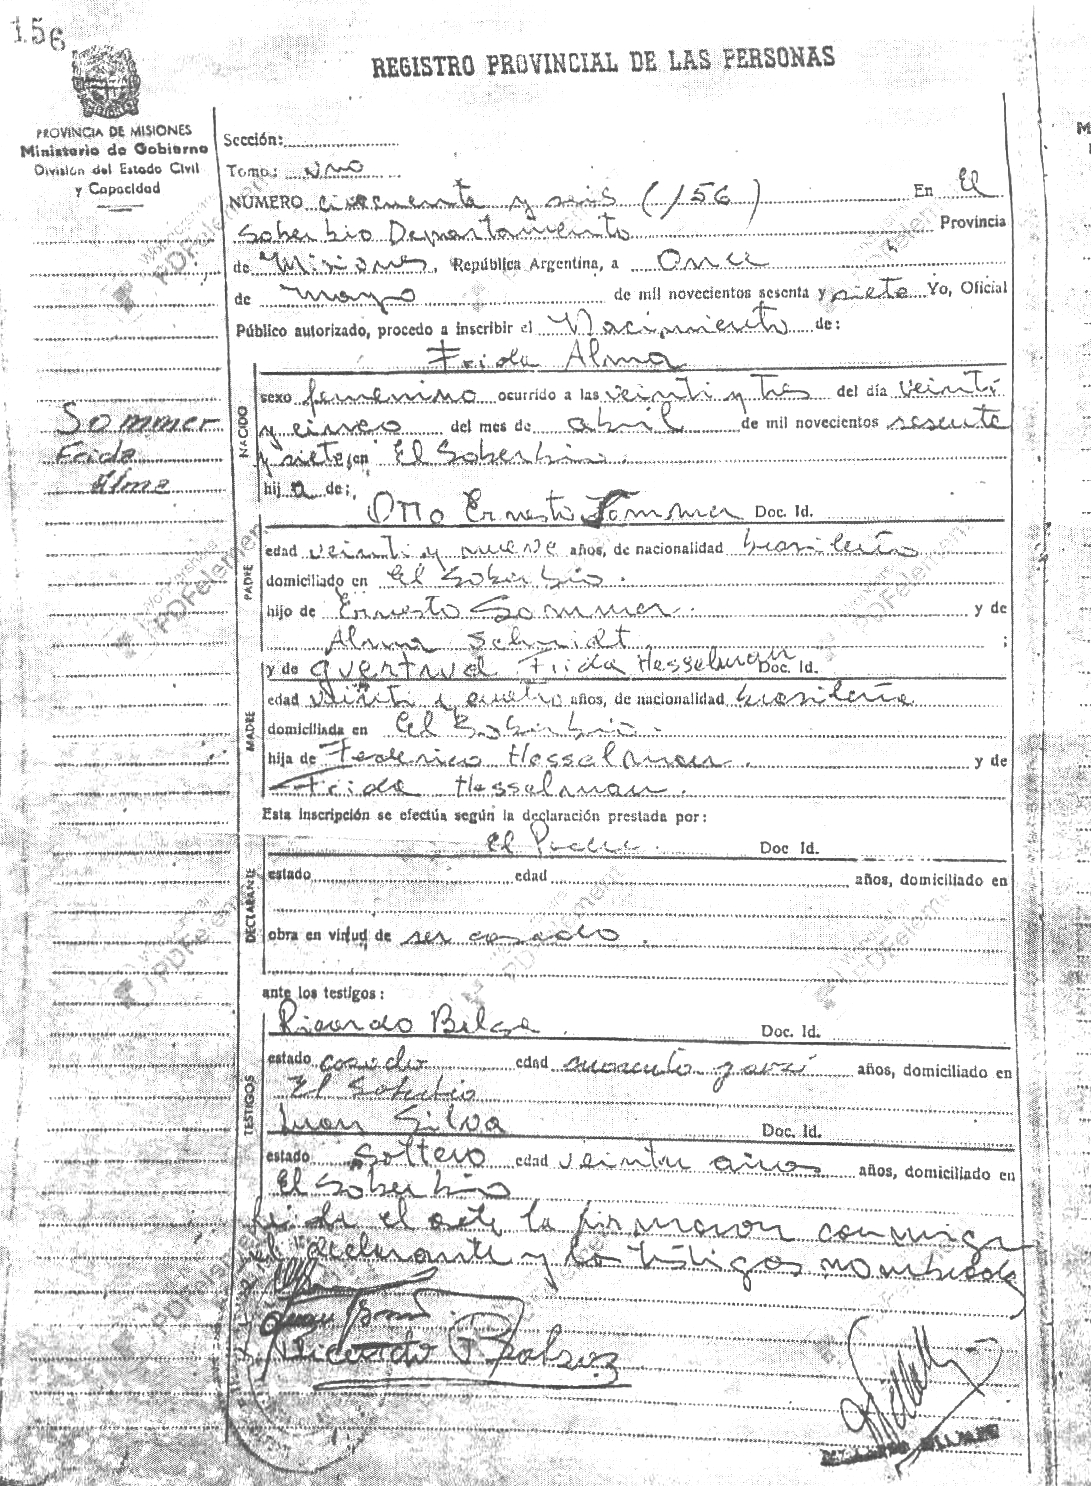 156
REGISTRO PROVINCIAL DE LAS PERSONAS
PROVINCIA DE MISIONES
Ministerio de Gobierno
División del Estado Civil
y Capacidad
Sección:
Tomo: uno
NÚMERO cincuenta y seis (156) En El
Soberbio Departamento Provincia
de Misiones, República Argentina, a Once
de mayo de mil novecientos sesenta y siete Yo, Oficial
Público autorizado, procedo a inscribir el Nacimiento de:
Frida Alma
Sommer
Frida
Alma
NACIDO
sexo femenino ocurrido a las veinti y tres del día veinti
y cinco del mes de abril de mil novecientos sesenta
y siete, en El Soberbio.
hij a de:
Otto Ernesto Sommer Doc. Id.
PADRE
edad veinti y nueve años, de nacionalidad brasileño
domiciliado en El Soberbio.
hijo de Ernesto Sommer. y de
Alma Schmidt ;
y de Guertrud Frida Hesselman Doc. Id.
MADRE
edad veinti y cuatro años, de nacionalidad brasileña
domiciliada en El Soberbio.
hija de Federico Hesselman. y de
Frida Hesselman.
Esta inscripción se efectúa según la declaración prestada por:
El Padre. Doc Id.
DECLARANTE
estado edad años, domiciliado en
obra en virtud de ser casado.
ante los testigos:
Ricardo Doc. Id.
TESTIGOS
estado casado edad años, domiciliado en
El Soberbio
Juan Silva Doc. Id.
estado Soltero edad años, domiciliado en
El Soberbio
el acta la firmaron conmigo
el declarante y los testigos nombrados
Wondershare
PDFelement